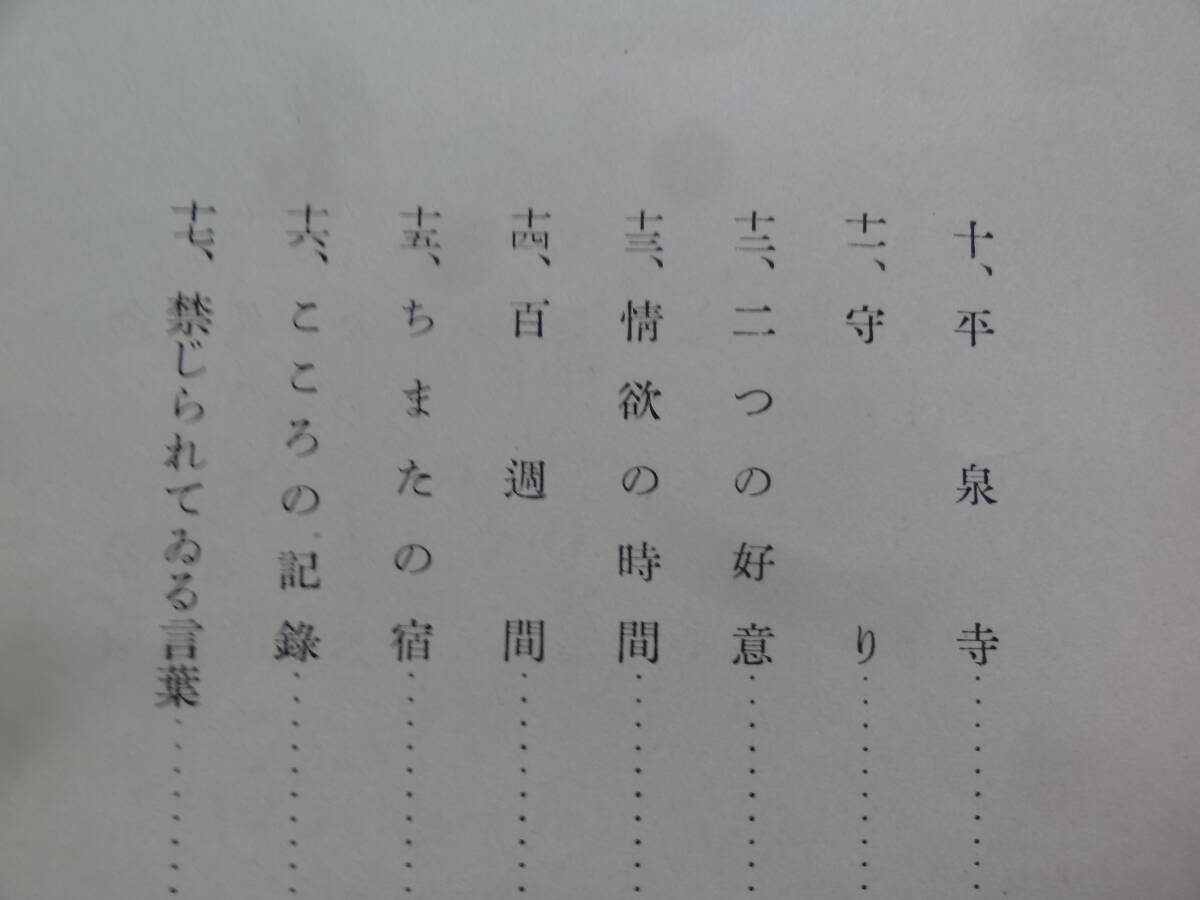 十、平泉寺…………
十一、守り…………
十二、二つの好意…………
十三、情欲の時間…………
十四、百週間…………
十五、ちまたの宿…………
十六、こころの記錄…………
十七、禁じられてゐる言葉…………